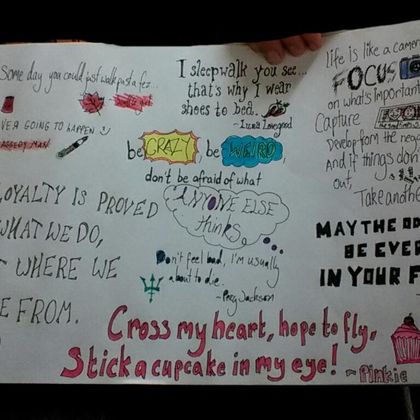 Some day you could just walk past a fez...
VER GOING TO HAPPEN
RAGGEDY MAN
I sleepwalk you see...
that's why I wear
shoes to bed.
- Luna Lovegood
life is like a camera
FOCUS
on what's important
Capture
Develop from the neg
And if things don't
out,
Take another
be CRAZY, be WEIRD
don't be afraid of what
ANYONE ELSE
thinks.
LOYALTY IS PROVED
WHAT WE DO,
WHERE WE
E FROM.
Don't feel bad, I'm usually
about to die.
- Percy Jackson
MAY THE OD
BE EVER
IN YOUR F
Cross my heart, hope to fly,
Stick a cupcake in my eye!
~ Pinkie